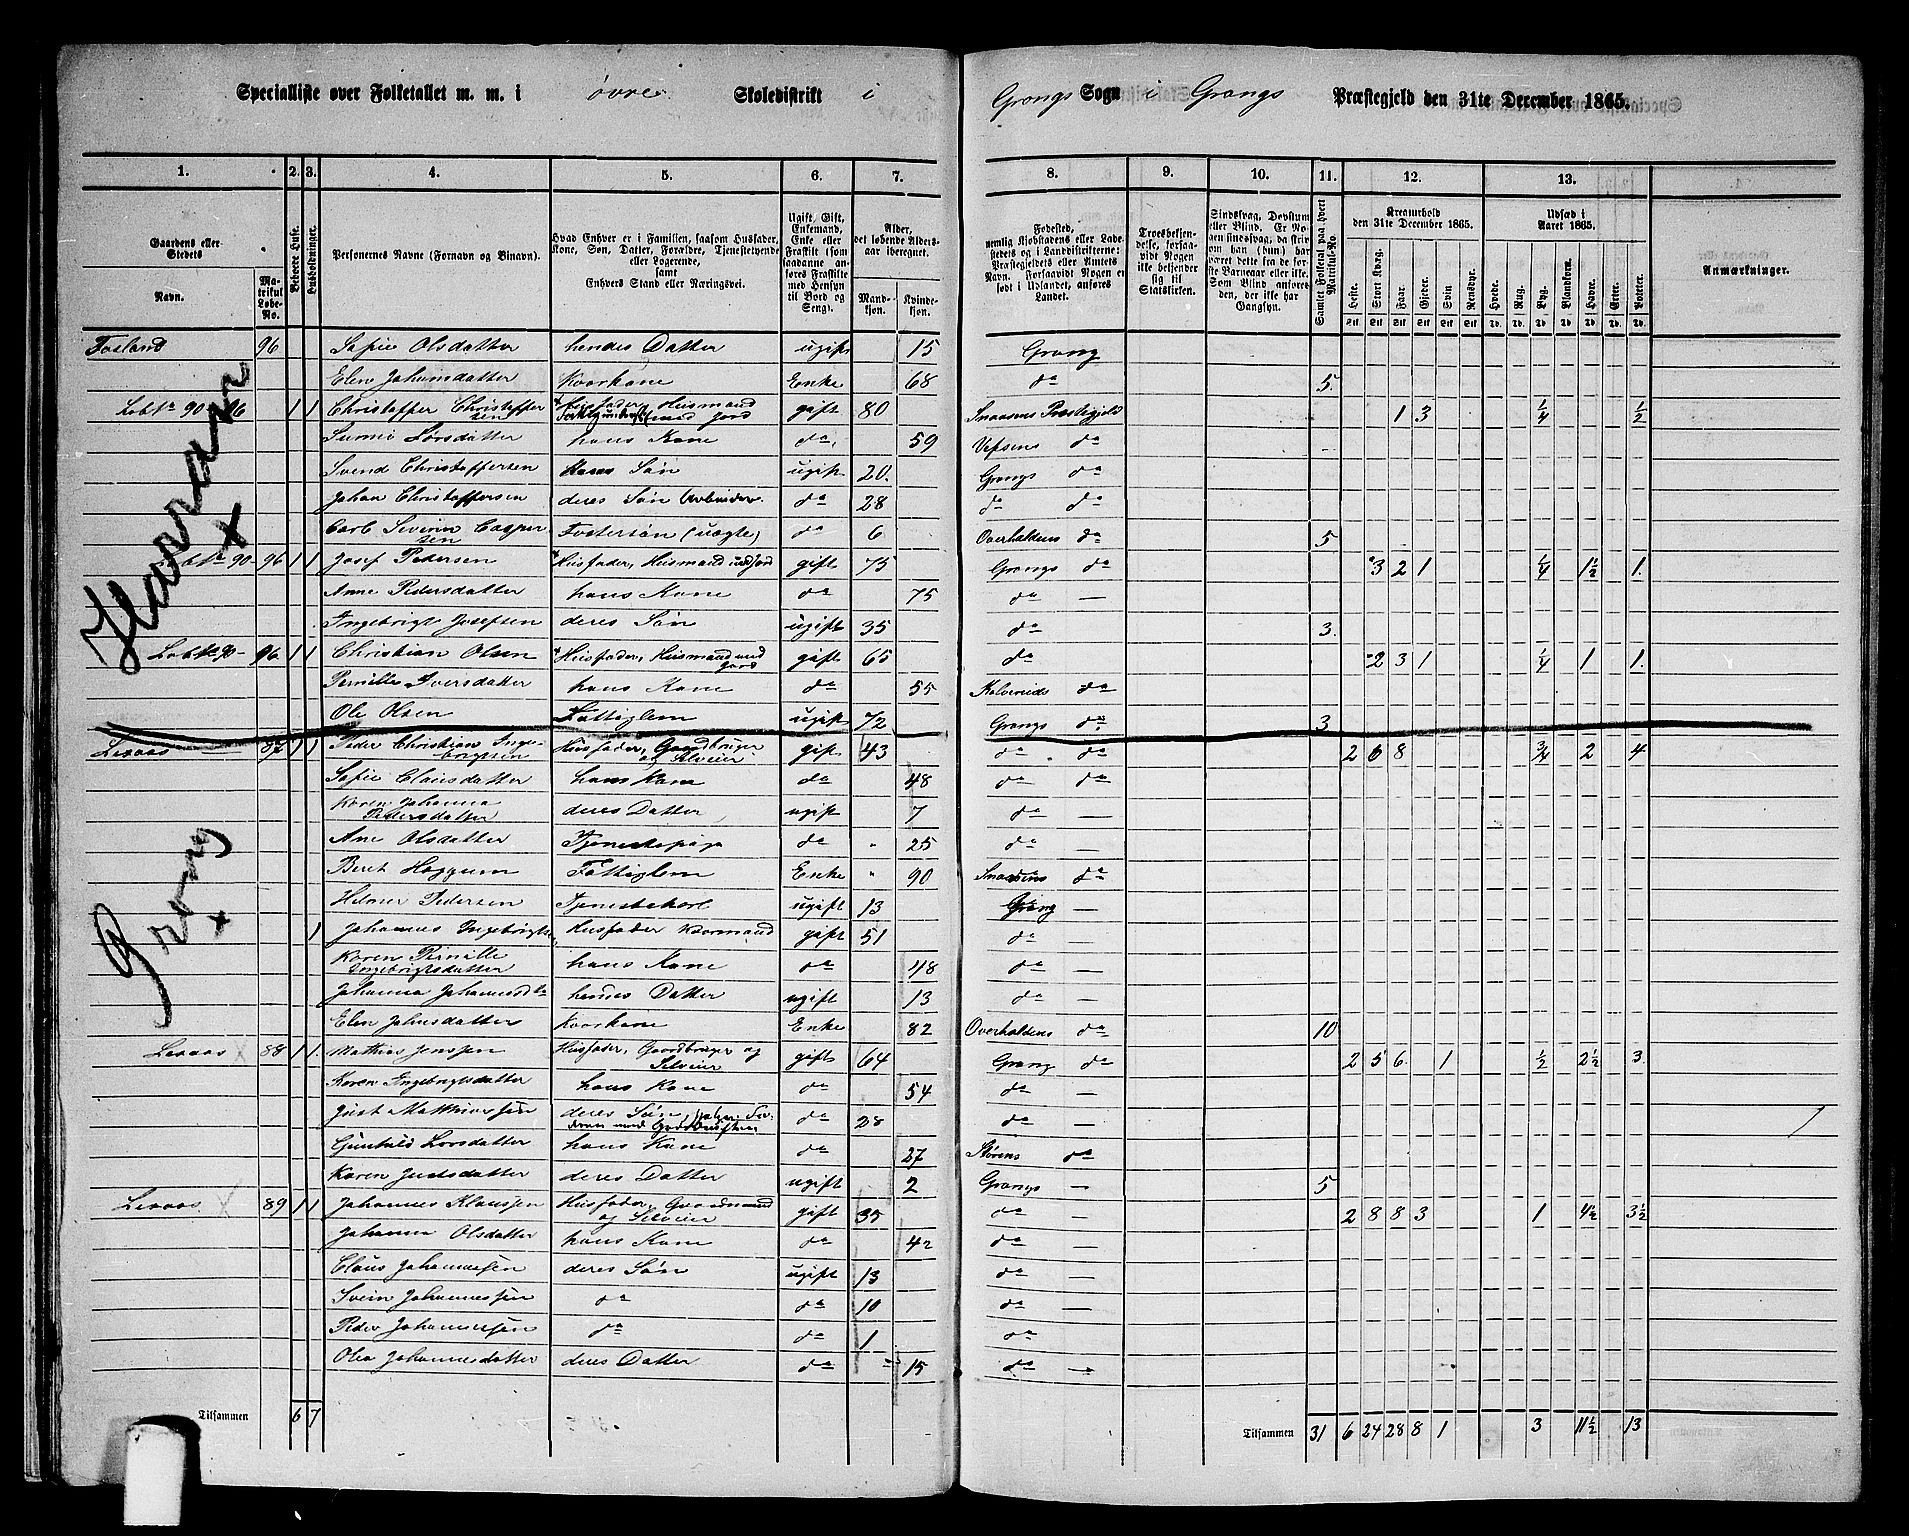 Specialliste over Folketallet m. m. i øvre Skoledistrikt i Grongs Sogn i Grongs Præstegjeld den 31te December 1865.
1. 2. 3. 4. 5. 6. 7. 8. 9. 10. 11. 12. 13.
Gaardens eller Stedets Navn. Matrikul Løbe-No. Beboede Huse. Husholdninger. Personernes Navne (Fornavn og Binavn). Hvad Enhver er i Familien, saasom Husfader, Kone, Søn, Datter, Forældre, Tjenestetyende eller Logerende, samt Enhvers Stand eller Næringsvei. Ugift, Gift, Enkemand, Enke eller Fraskilte (som saadanne anføres Fraskilte med Hensyn til Bord og Seng). Alder, det løbende Aldersaar iberegnet. Mandkjøn. Kvindekjøn.
Fødested, nemlig Kjøbstadens eller Ladestedets og i Landdistrikterne: Præstegjeldets eller Amtets Navn. Forsaavidt Nogen er født i Udlandet, anføres Landet. Troesbekjendelse, forsaavidt Nogen ikke bekjender sig til Statskirken. Sindssvag, Døvstum eller Blind. Samlet Folketal paa hvert Matrikul-No. Kreaturhold den 31te December 1865. Heste. Stort Kvæg. Faar. Gjeder. Svin. Rensdyr. Udsæd i Aaret 1865. Hvede. Rug. Byg. Blandkorn. Havre. Erter. Poteter. Anmærkninger.
Fosland 96 Sofie Olsdatter hendes Datter ugift 15 Grong
Elen Johansdatter Kaarkone Enke 68 do 5.
Lobt 90 96 1 1 Christoffer Christoffersen Husfader, Husmand med Jord gift 80 Snaasens Præstegjeld 1 3 1/4 1/2
Larsdatter hans Kone do 59 Vefsens do
Svend Christoffersen Søn ugift 20. Grongs do
Johan Christoffersen deres Søn Arbeider do 28 do do
Carl Severin Caspersen Fostersøn (uægte) do 6 Overhaldens do 5
Lobt 90- 96 1 1 Josef Pedersen Husfader, Husmand med Jord gift 75 Grongs do 3 2 1 1/4 1 1/2 1.
Anne Pedersdatter hans Kone do 75 do —
Ingebrigt Josefsen deres Søn ugift 35 do 3.
Lobt 90- 96 1 1 Christian Olsen Husfader, Husmand med Jord gift 65 do 2 3 1 1/4 1 1.
Pernille Iversdatter hans Kone do 55 do
Ole Olsen Fattiglem ugift 72 Grongs do 3
Lexaas 87 1 1 Peder Christian Ingebrigtsen Husfader, Gaardbruger og Selveier gift 43 do do 2 6 8 3/4 2 4
Sofie Clausdatter hans Kone do 48 do do
Karen Johanna Pedersdatter deres Datter ugift 7 do —
Ane Olsdatter Tjenestepige do 25 do —
Beret Haggum Fattiglem Enke 90 Snaasens do
Hilmer Pedersen Tjenestekarl ugift 13 Grong —
1 Johannes Ingebrigtsen Husfader Kaarmand gift 51 do —
Karen Pernille Ingebrigtsdatter hans Kone do 48 do —
Johanna Johannesdtr hendes Datter ugift 13 do —
Elen Johnsdatter Kaarkone Enke 82 Overhaldens do 10
Lexaas 88 1 1. Mathias Jenssen Husfader, Gaardbruger og Selveier gift 64 Grong do 2 5 6. 1 1/2 2 1/2 3.
Karen Ingebrigtsdatter hans Kone do 54 do —
Just Mathiassen deres Søn, hjelper Faderen med Gaardsdriften do 28 do —
Gunhild Larsdatter hans Kone do 27 Størens do
Karen Justsdatter deres Datter ugift 2 Grongs — 5
Lexaas 89 1 1 Johannes Klaussen Husfader, Gaardmand og Selveier gift 35 do — 2 8 8 3 1 4 1/2 3 1/2
Johanna Olsdatter hans Kone do 42 do —
Claus Johannessen deres Søn ugift 13 do —
Svein Johannessen do do 10 do —
Peder Johannessen do do 1 do —
Olea Johannesdatter deres Datter do 15 do —
Tilsammen 6 7 Tilsammen 31 6 24 28 8 1 3 11 1/2 13
Harran x
Grong x